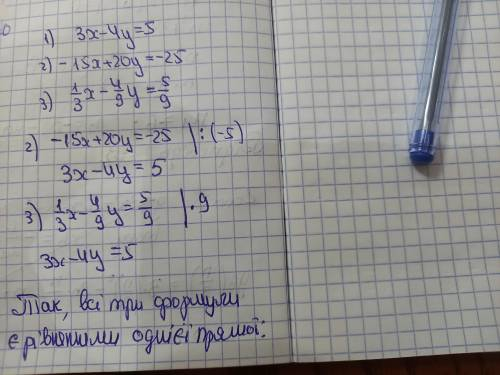 1) 3x-4y=5
2) -15x+20y=-25
3) 1/3x-4/9y=5/9
2) -15x+20y=-25 |:(-5)
3x-4y=5
3) 1/3x-4/9y=5/9 |·9
3x-4y=5
Так, всі три формули
є рівняннями однієї прямої.